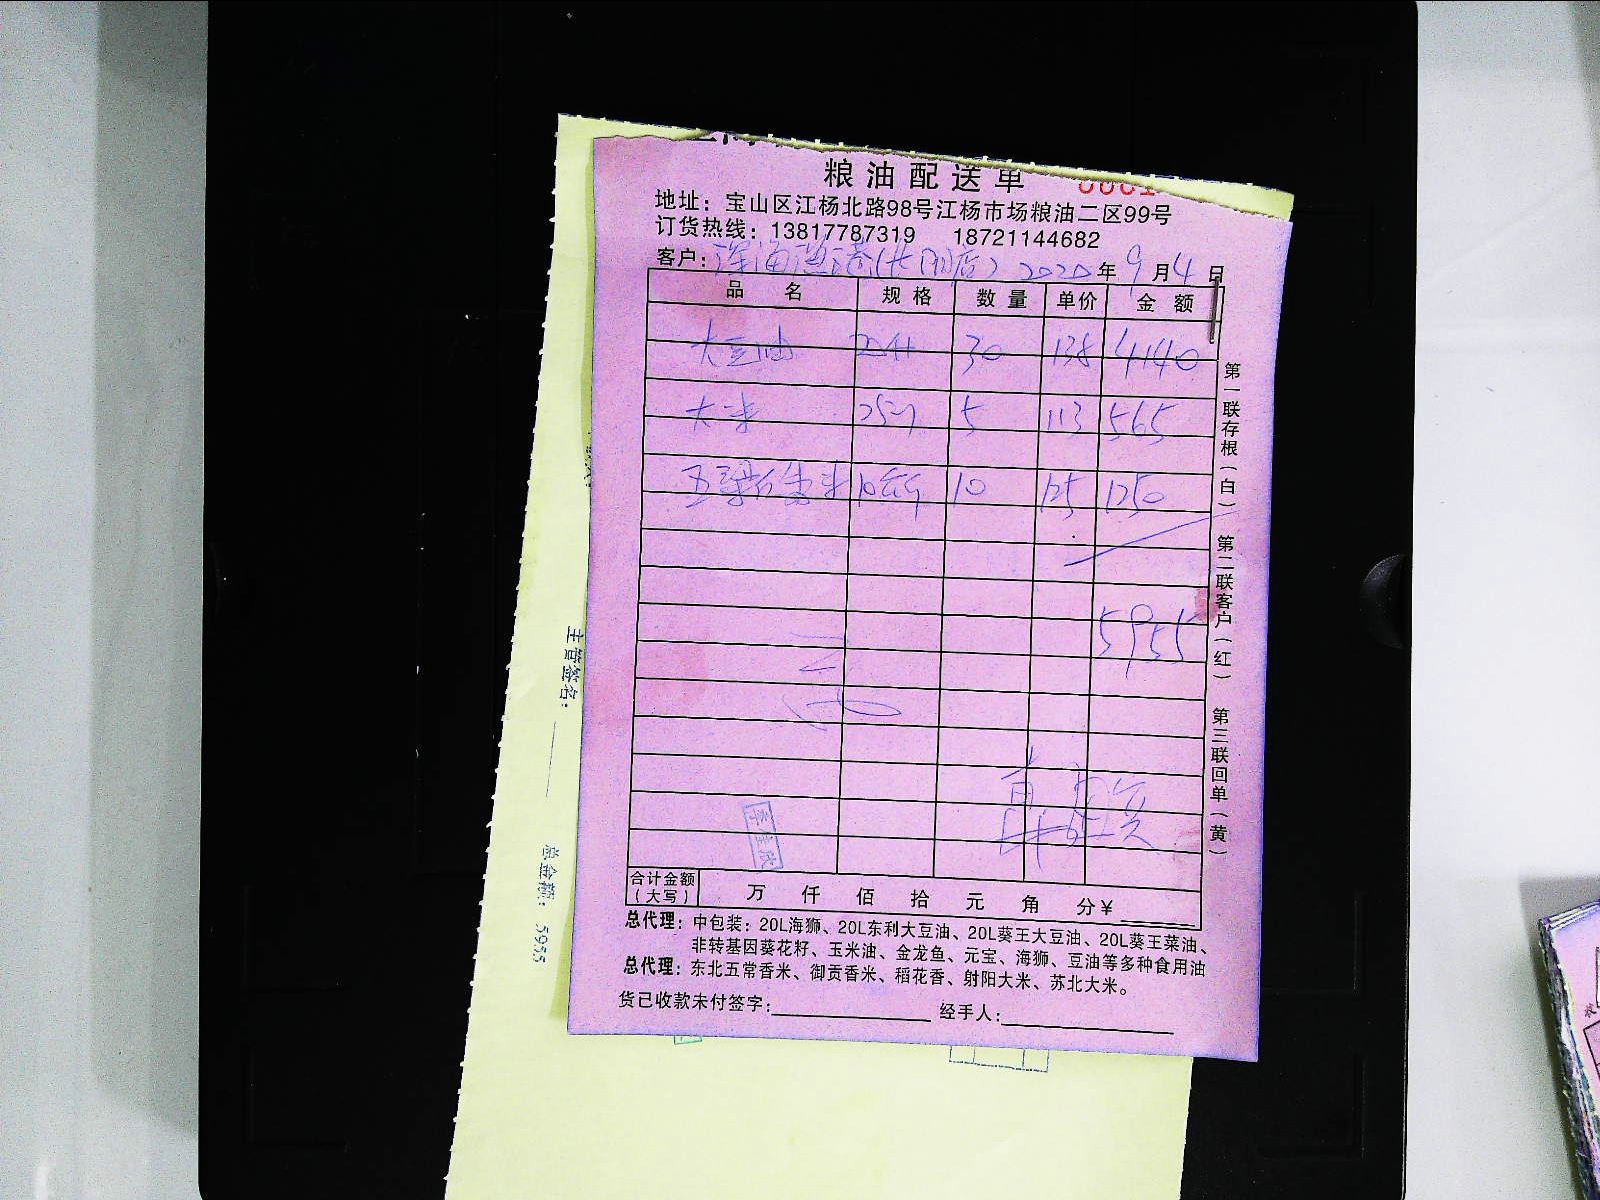 粮油配送单
地址：宝山区江杨北路98号江杨市场粮油二区99号
订货热线：13817787319 18721144682
客户：深海渔港 2020年9月4日
品名 规格 数量 单价 金额
大豆油 30 138 4140
大米 25 5 113 565
10 10 125 1250
5955
合计金额（大写） 万 仟 佰 拾 元 角 分￥
总代理：中包装：20L海狮、20L东利大豆油、20L葵王大豆油、20L葵王菜油、
非转基因葵花籽、玉米油、金龙鱼、元宝、海狮、豆油等多种食用油
总代理：东北五常香米、御贡香米、稻花香、射阳大米、苏北大米。
货已收款未付签字： 经手人：
第一联存根（白） 第二联客户（红） 第三联回单（黄）
主管签名：
总金额：5955